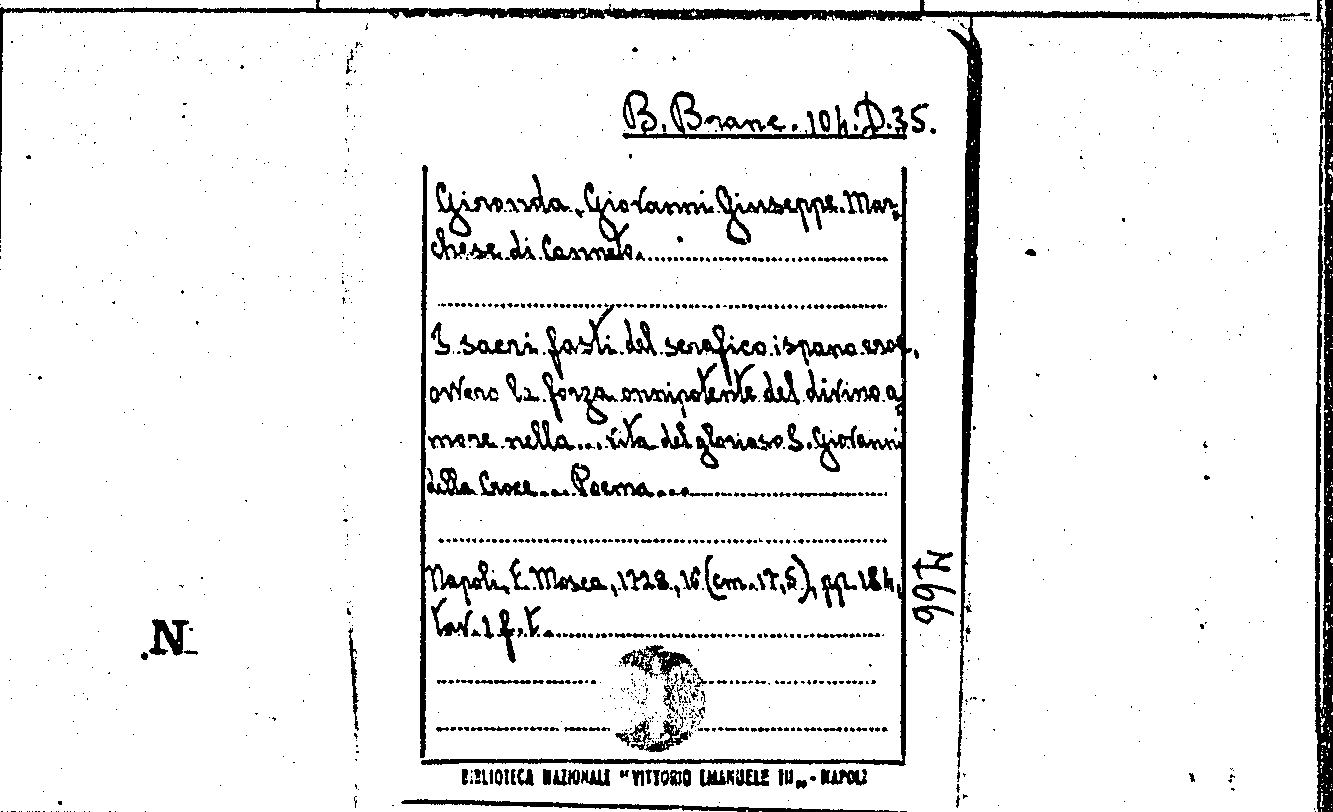 B. Branc. 104.D.35.
Gironda, Giovanni Giuseppe. Mar-
chese di Canneto.
I sacri fasti del serafico ispano eroe,
ovvero la forza onnipotente del divino a-
more nella... vita del glorioso S. Giovanni
della Croce... Poema...
Napoli, F. Mosca, 1728, 16° (cm. 17,5), pp. 184,
tav. 1 f. t.
N
BIBLIOTECA NAZIONALE "VITTORIO EMANUELE III„ - NAPOLI